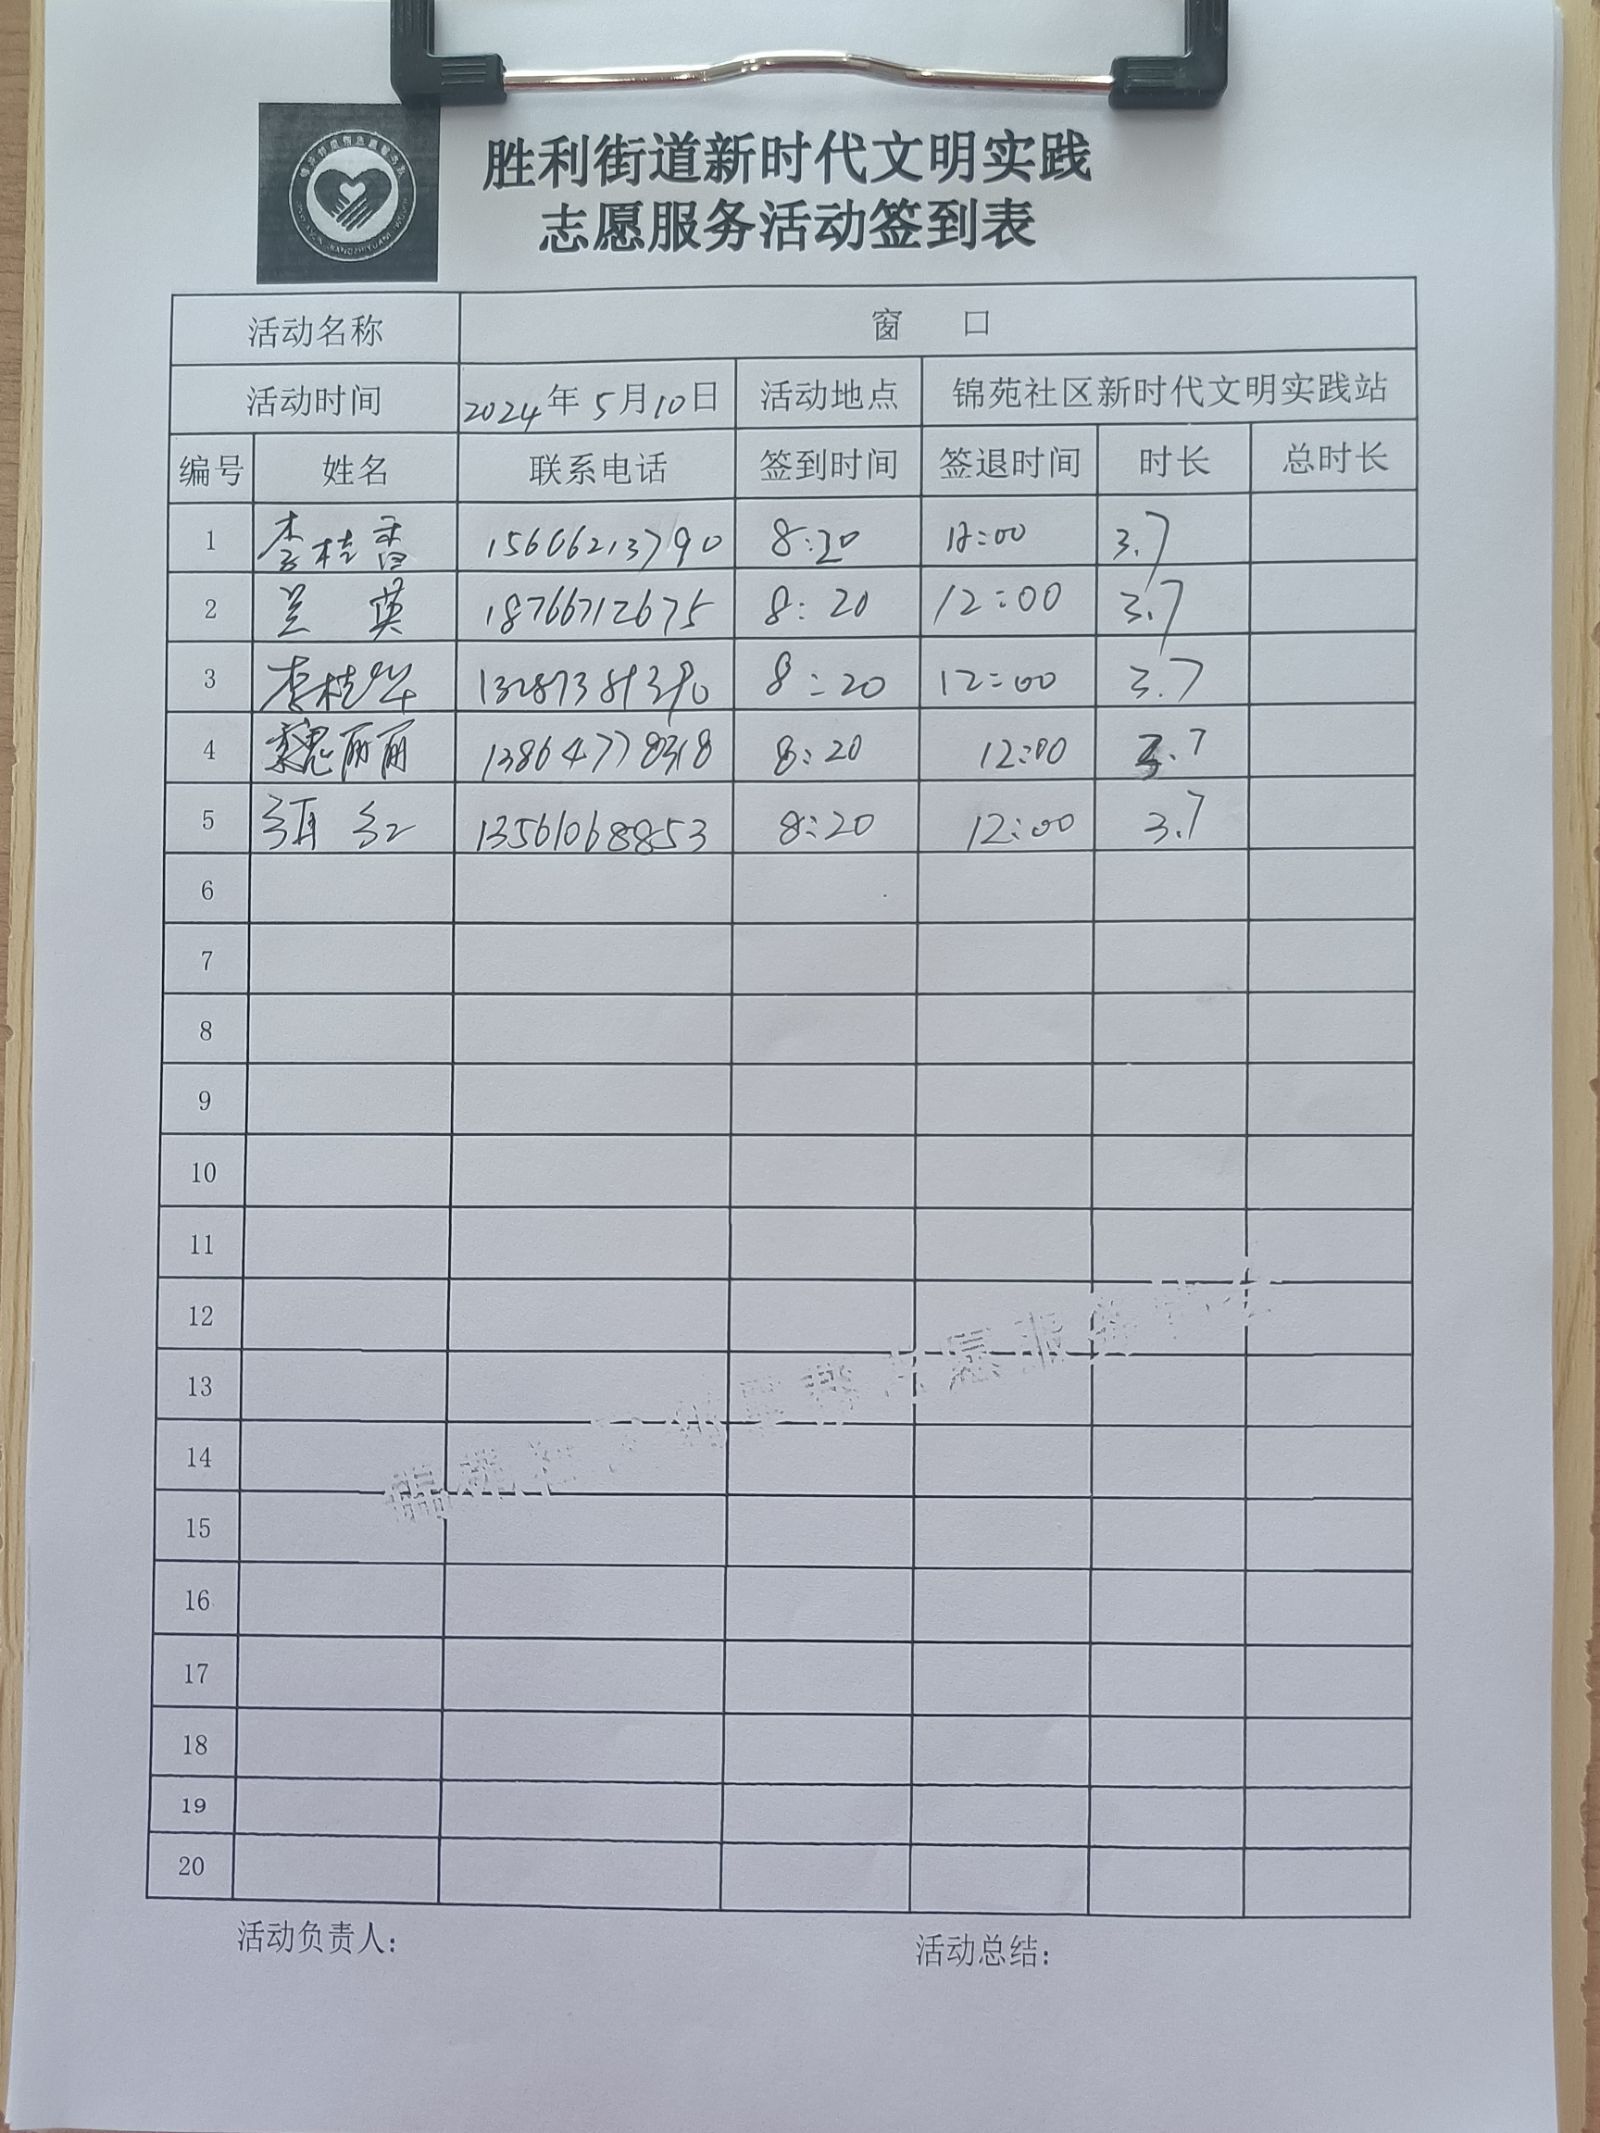 胜利街道新时代文明实践
志愿服务活动签到表
活动名称 窗 口
活动时间 2024年5月10日 活动地点 锦苑社区新时代文明实践站
编号 姓名 联系电话 签到时间 签退时间 时长 总时长
1 李桂香 15606213790 8:20 12:00 3.7
2 英 18766712675 8:20 12:00 3.7
3 李桂华 13287389390 8:20 12:00 3.7
4 魏丽丽 13864778318 8:20 12:00 3.7
5 红 13561068853 8:20 12:00 3.7
6
7
8
9
10
11
12
13
14
15
16
17
18
19
20
活动负责人: 活动总结: